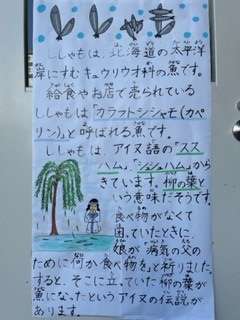 ししゃもは、北海道の太平洋
岸にすむキュウリウオ科の魚です。
給食やお店で売られている
ししゃもは「カラフトシシャモ(カペ
リン)」と呼ばれる魚です。
ししゃもは、アイヌ語の「スス
ハム」「シュシュハム」から
きています。柳の葉と
いう意味だそうです。
食べ物がなくて
困っていたときに、
娘が病気の父の
ために「何か食べ物を」と祈りました。
すると、そこに立っていた柳の葉が
魚になったというアイヌの伝説が
あります。